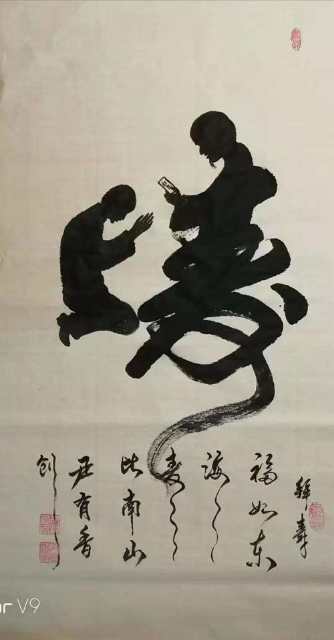 拜寿
福如东
海
寿
比南山
庄有香
创
or V9